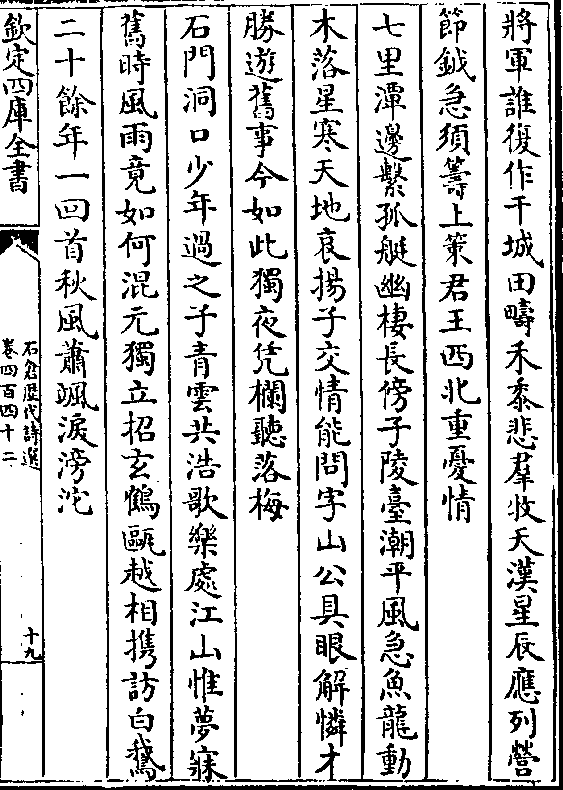 將軍誰復作干城田疇禾黍悲羣牧天漢星辰應列營
節鉞急須籌上策君王西北重憂情
七里潭邊繫孤艇幽棲長傍子陵臺潮平風急魚龍動
木落星寒天地哀揚子交情能問字山公具眼解憐才
勝遊舊事今如此獨夜凭欄聽落梅
石門洞口少年過之子青雲共浩歌樂處江山惟夢寐
舊時風雨竟如何混元獨立招玄鶴甌越相攜訪白鵞
二十餘年一回首秋風蕭颯淚滂沱
欽定四庫全書
石倉歷代詩選
卷四百四十二
十九